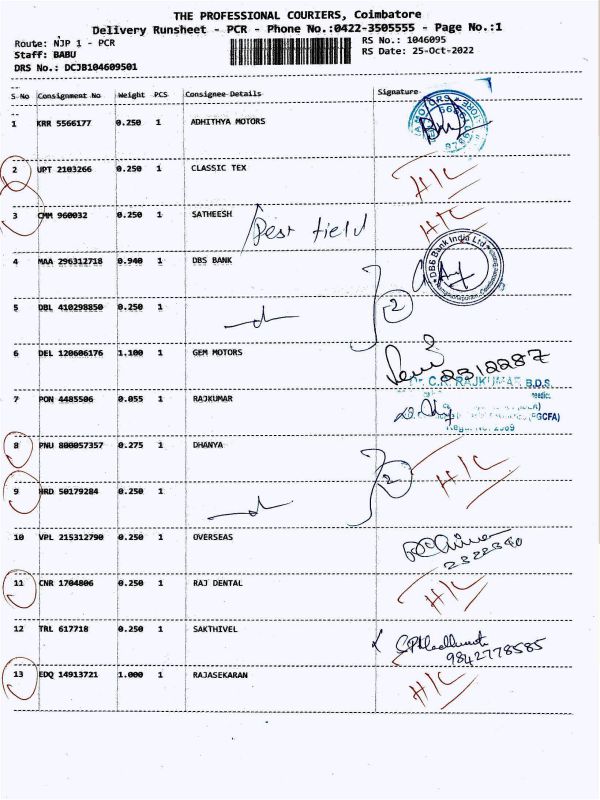 THE PROFESSIONAL COURIERS, Coimbatore
Delivery Runsheet - PCR - Phone No.:0422-3505555 - Page No.:1
Route: NJP 1 - PCR RS No.: 1046095
Staff: BABU RS Date: 25-Oct-2022
DRS No.: DCJB104609501
S No Consignment No Weight PCS Consignee Details Signature
1 KRR 5566177 0.250 1 ADHITHYA MOTORS
2 UPT 2103266 0.250 1 CLASSIC TEX H/C
3 CMM 960032 0.250 1 SATHEESH H/C
4 MAA 296312718 0.940 1 DBS BANK 2 DBS Bank India Ltd
5 DBL 410298850 0.250 1
6 DEL 120606176 1.100 1 GEM MOTORS 2312287
7 PON 4485506 0.055 1 RAJKUMAR C.R. RAJKUMAR B.D.S.
8 PNU 800057357 0.275 1 DHANYA 2 H/C
9 HRD 50179284 0.250 1
10 VPL 215312790 0.250 1 OVERSEAS
11 CNR 1704806 0.250 1 RAJ DENTAL H/C
12 TRL 617718 0.250 1 SAKTHIVEL 9842778585
13 EDQ 14913721 1.000 1 RAJASEKARAN H/C